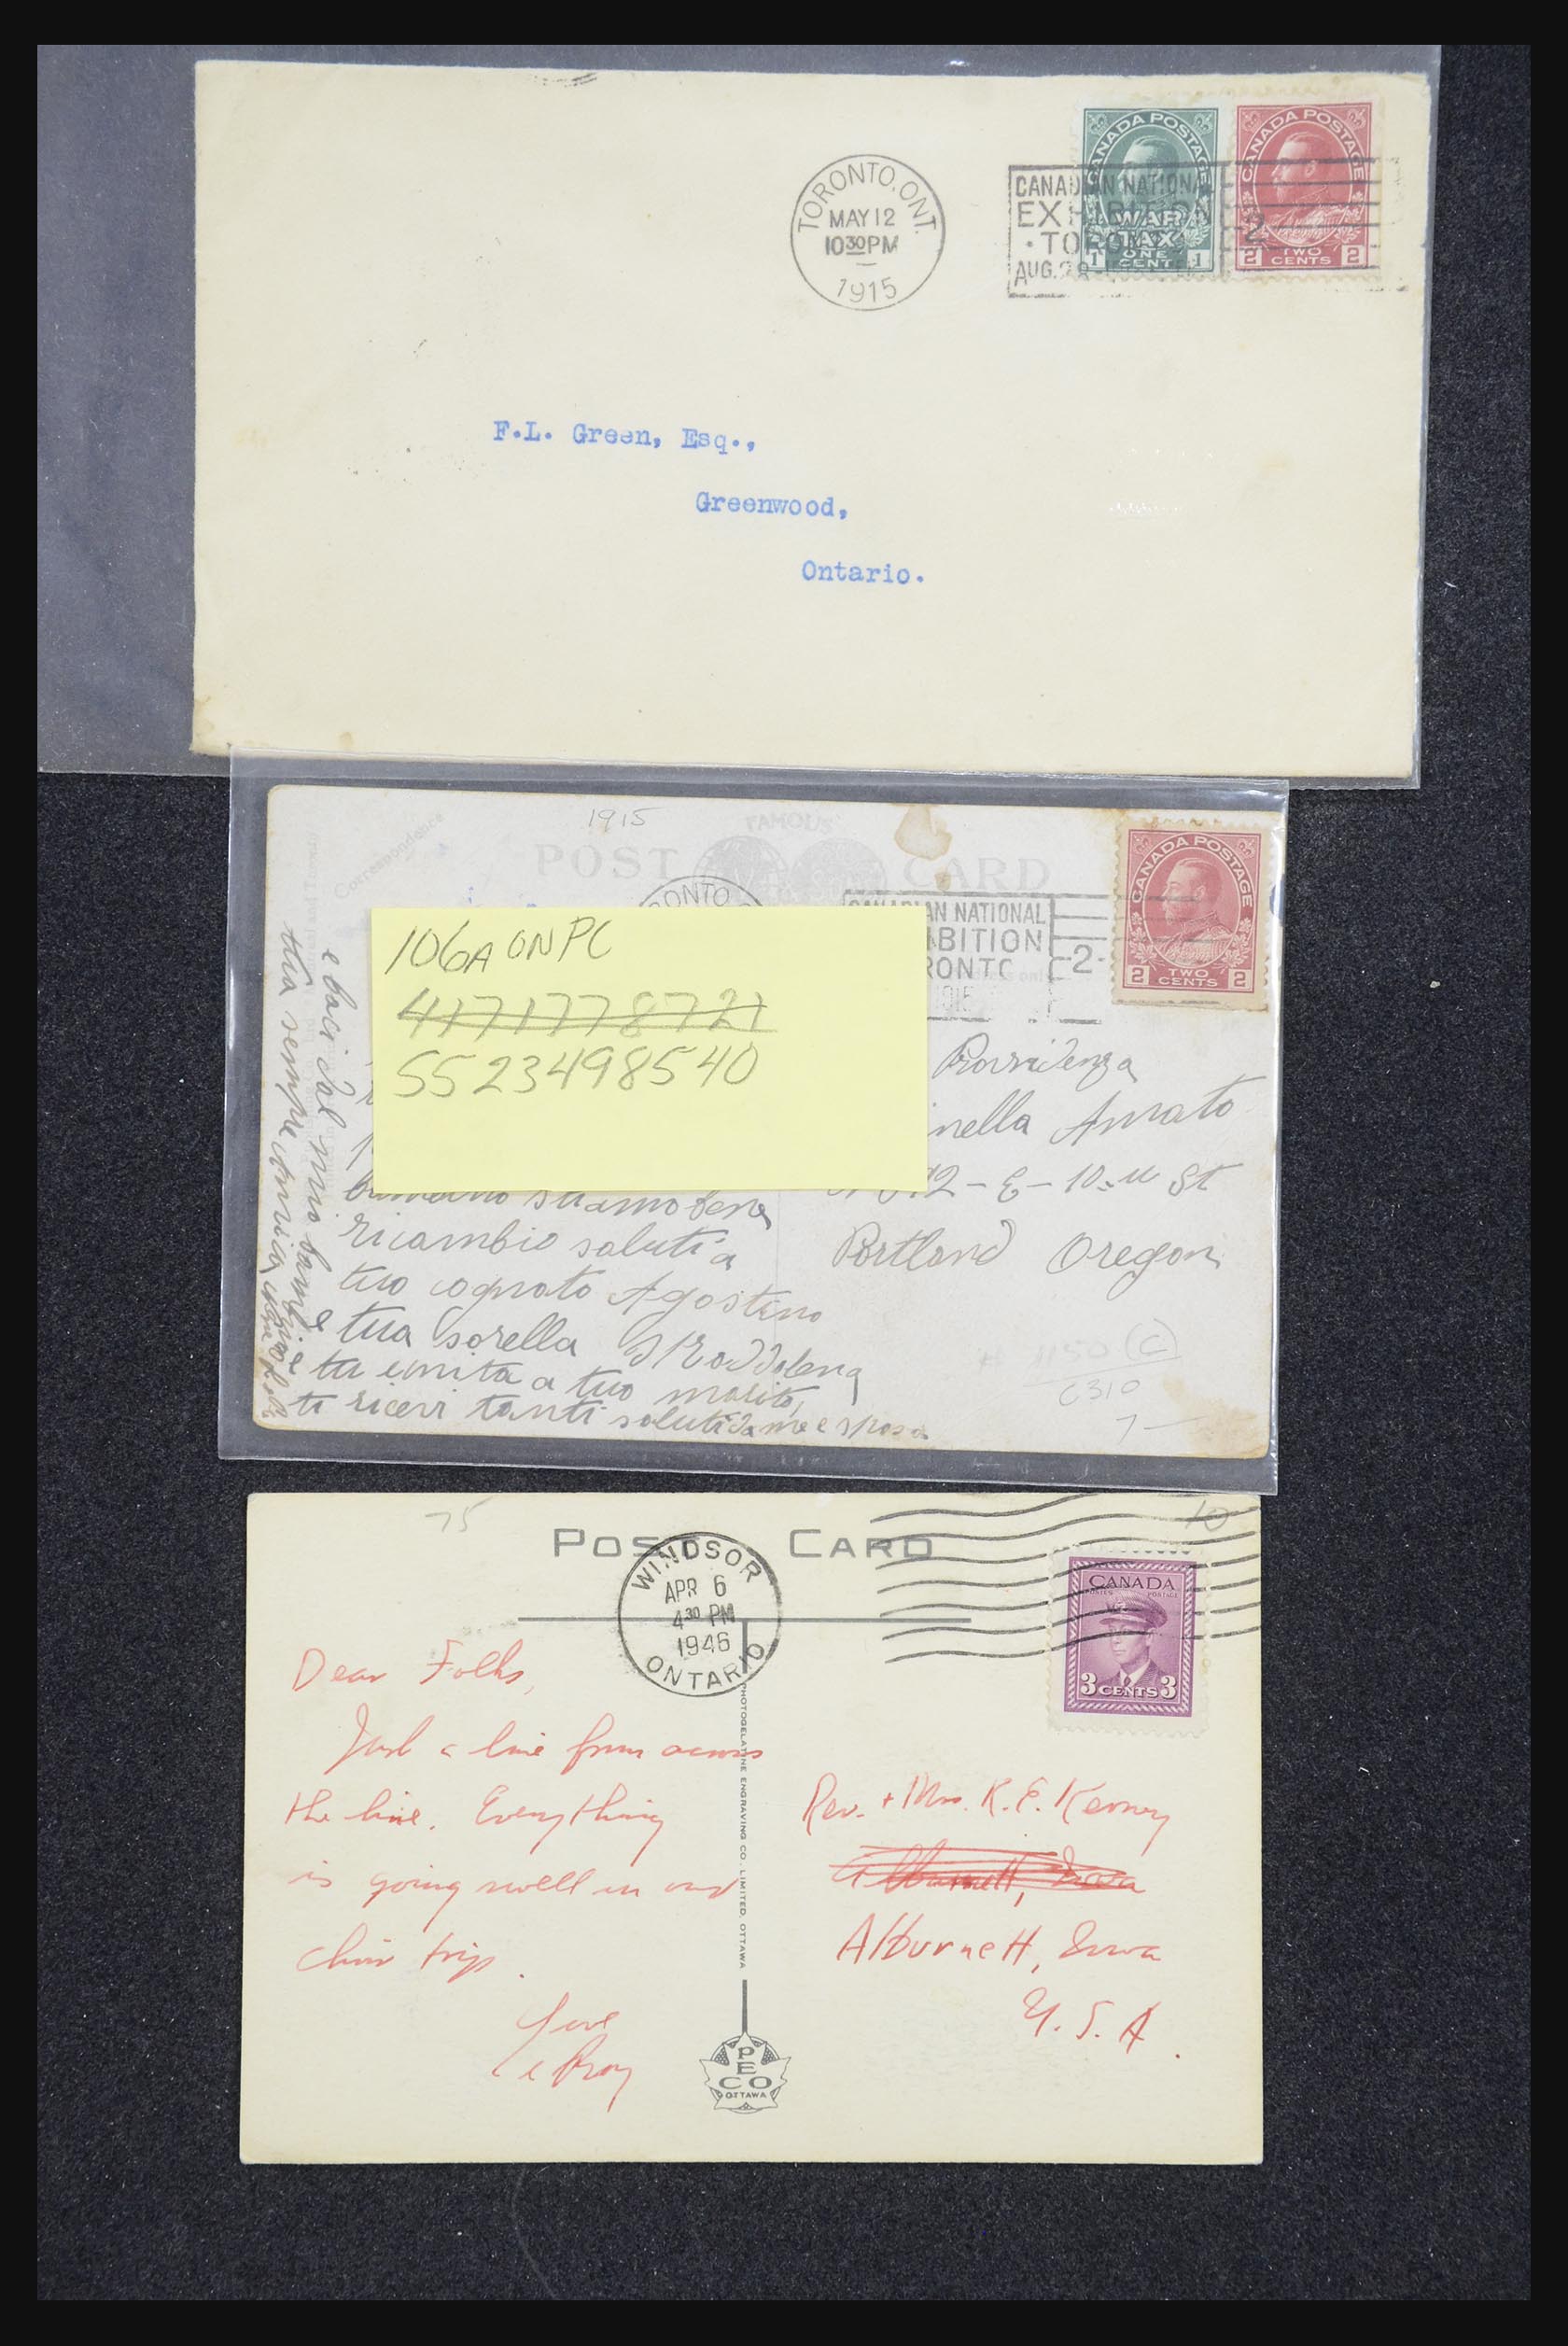 TORONTO, ONT.
MAY 12
10 30 PM
1915
CANADIAN NATIONAL
EXHIBITION
TORONTO
AUG. 28
2
CANADA POSTAGE
WAR
TAX
1 ONE CENT 1
CANADA POSTAGE
2 TWO CENTS 2
F.L. Green, Esq.,
Greenwood,
Ontario.
1915
FAMOUS
POST CARD
Correspondence
and Toronto
RONTO
CANADIAN NATIONAL
BITION
RONTO
1915
-2-
CANADA POSTAGE
2 TWO CENTS 2
106A ON PC
4171778721
5523498540
Provvidenza
nella Amato
2-E-10 St
Portland Oregon
stiamo bene
ricambio saluti a
tuo cognato Agostino
e tua sorella Maddalena
tu unita a tuo marito,
ti ricevi tanti saluti da me e sposa
e baci dal mio
tua sempre amica
1150 (C)
C310
7-
75
10
POST CARD
WINDSOR
APR 6
4 30 PM
1946
ONTARIO
CANADA
POSTES POSTAGE
3 CENTS 3
Dear Folks,
Just a line from across
the line. Everything
is going swell in our
choir trip.
Love
LeRoy
PHOTOGELATINE ENGRAVING CO. LIMITED, OTTAWA
Rev. + Mrs. K. E.
Alburnett, Iowa
Alburnett, Iowa
U.S.A.
PECO
OTTAWA